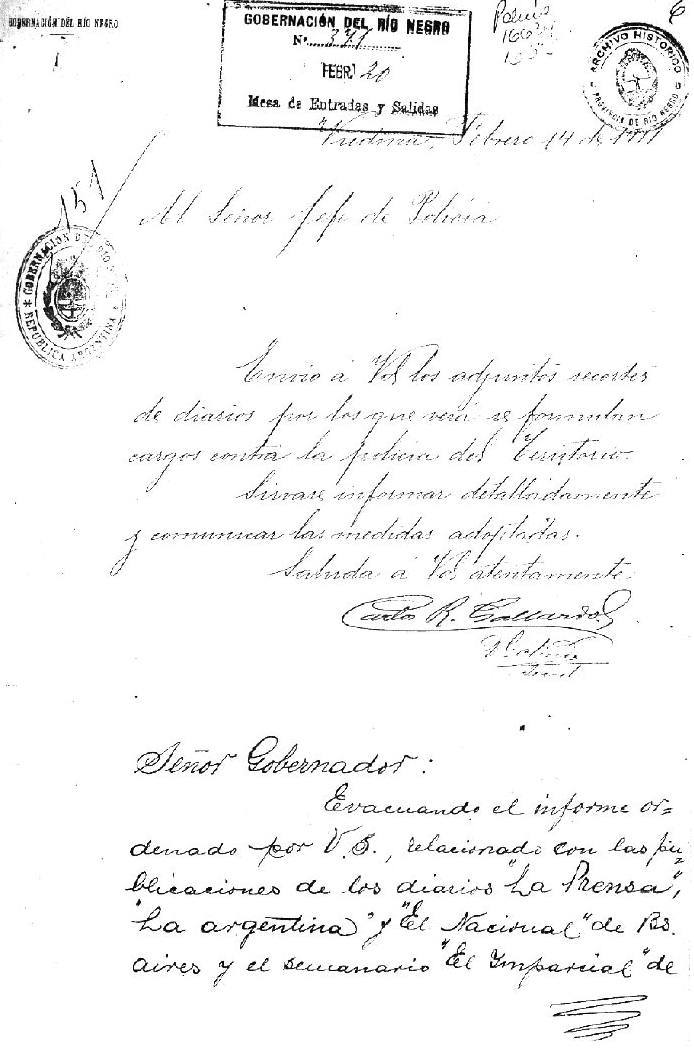 GOBERNACIÓN DEL RÍO NEGRO
GOBERNACIÓN DEL RÍO NEGRO
Nº 371
FEBR 20
Mesa de Entradas y Salidas
6
ARCHIVO HISTORICO
PROVINCIA DE RIO NEGRO
Viedma, Febrero 14 de
151
Al Señor Jefe de Policía
GOBERNACION DEL RIO NEGRO
REPUBLICA ARGENTINA
Envio á Vd. los adjuntos recortes
de diarios por los que verá se formulan
cargos contra la policia del Territorio.
Sirvase informar detalladamente
y comunicar las medidas adoptadas.
Saluda á Vd. atentamente
Carlos R. Gallardo
Señor Gobernador:
Evacuando el informe or-
denado por V. S., relacionado con las pu-
blicaciones de los diarios "La Prensa",
"La argentina" y "El Nacional" de Bs.
aires y el semanario "El Imparcial" de